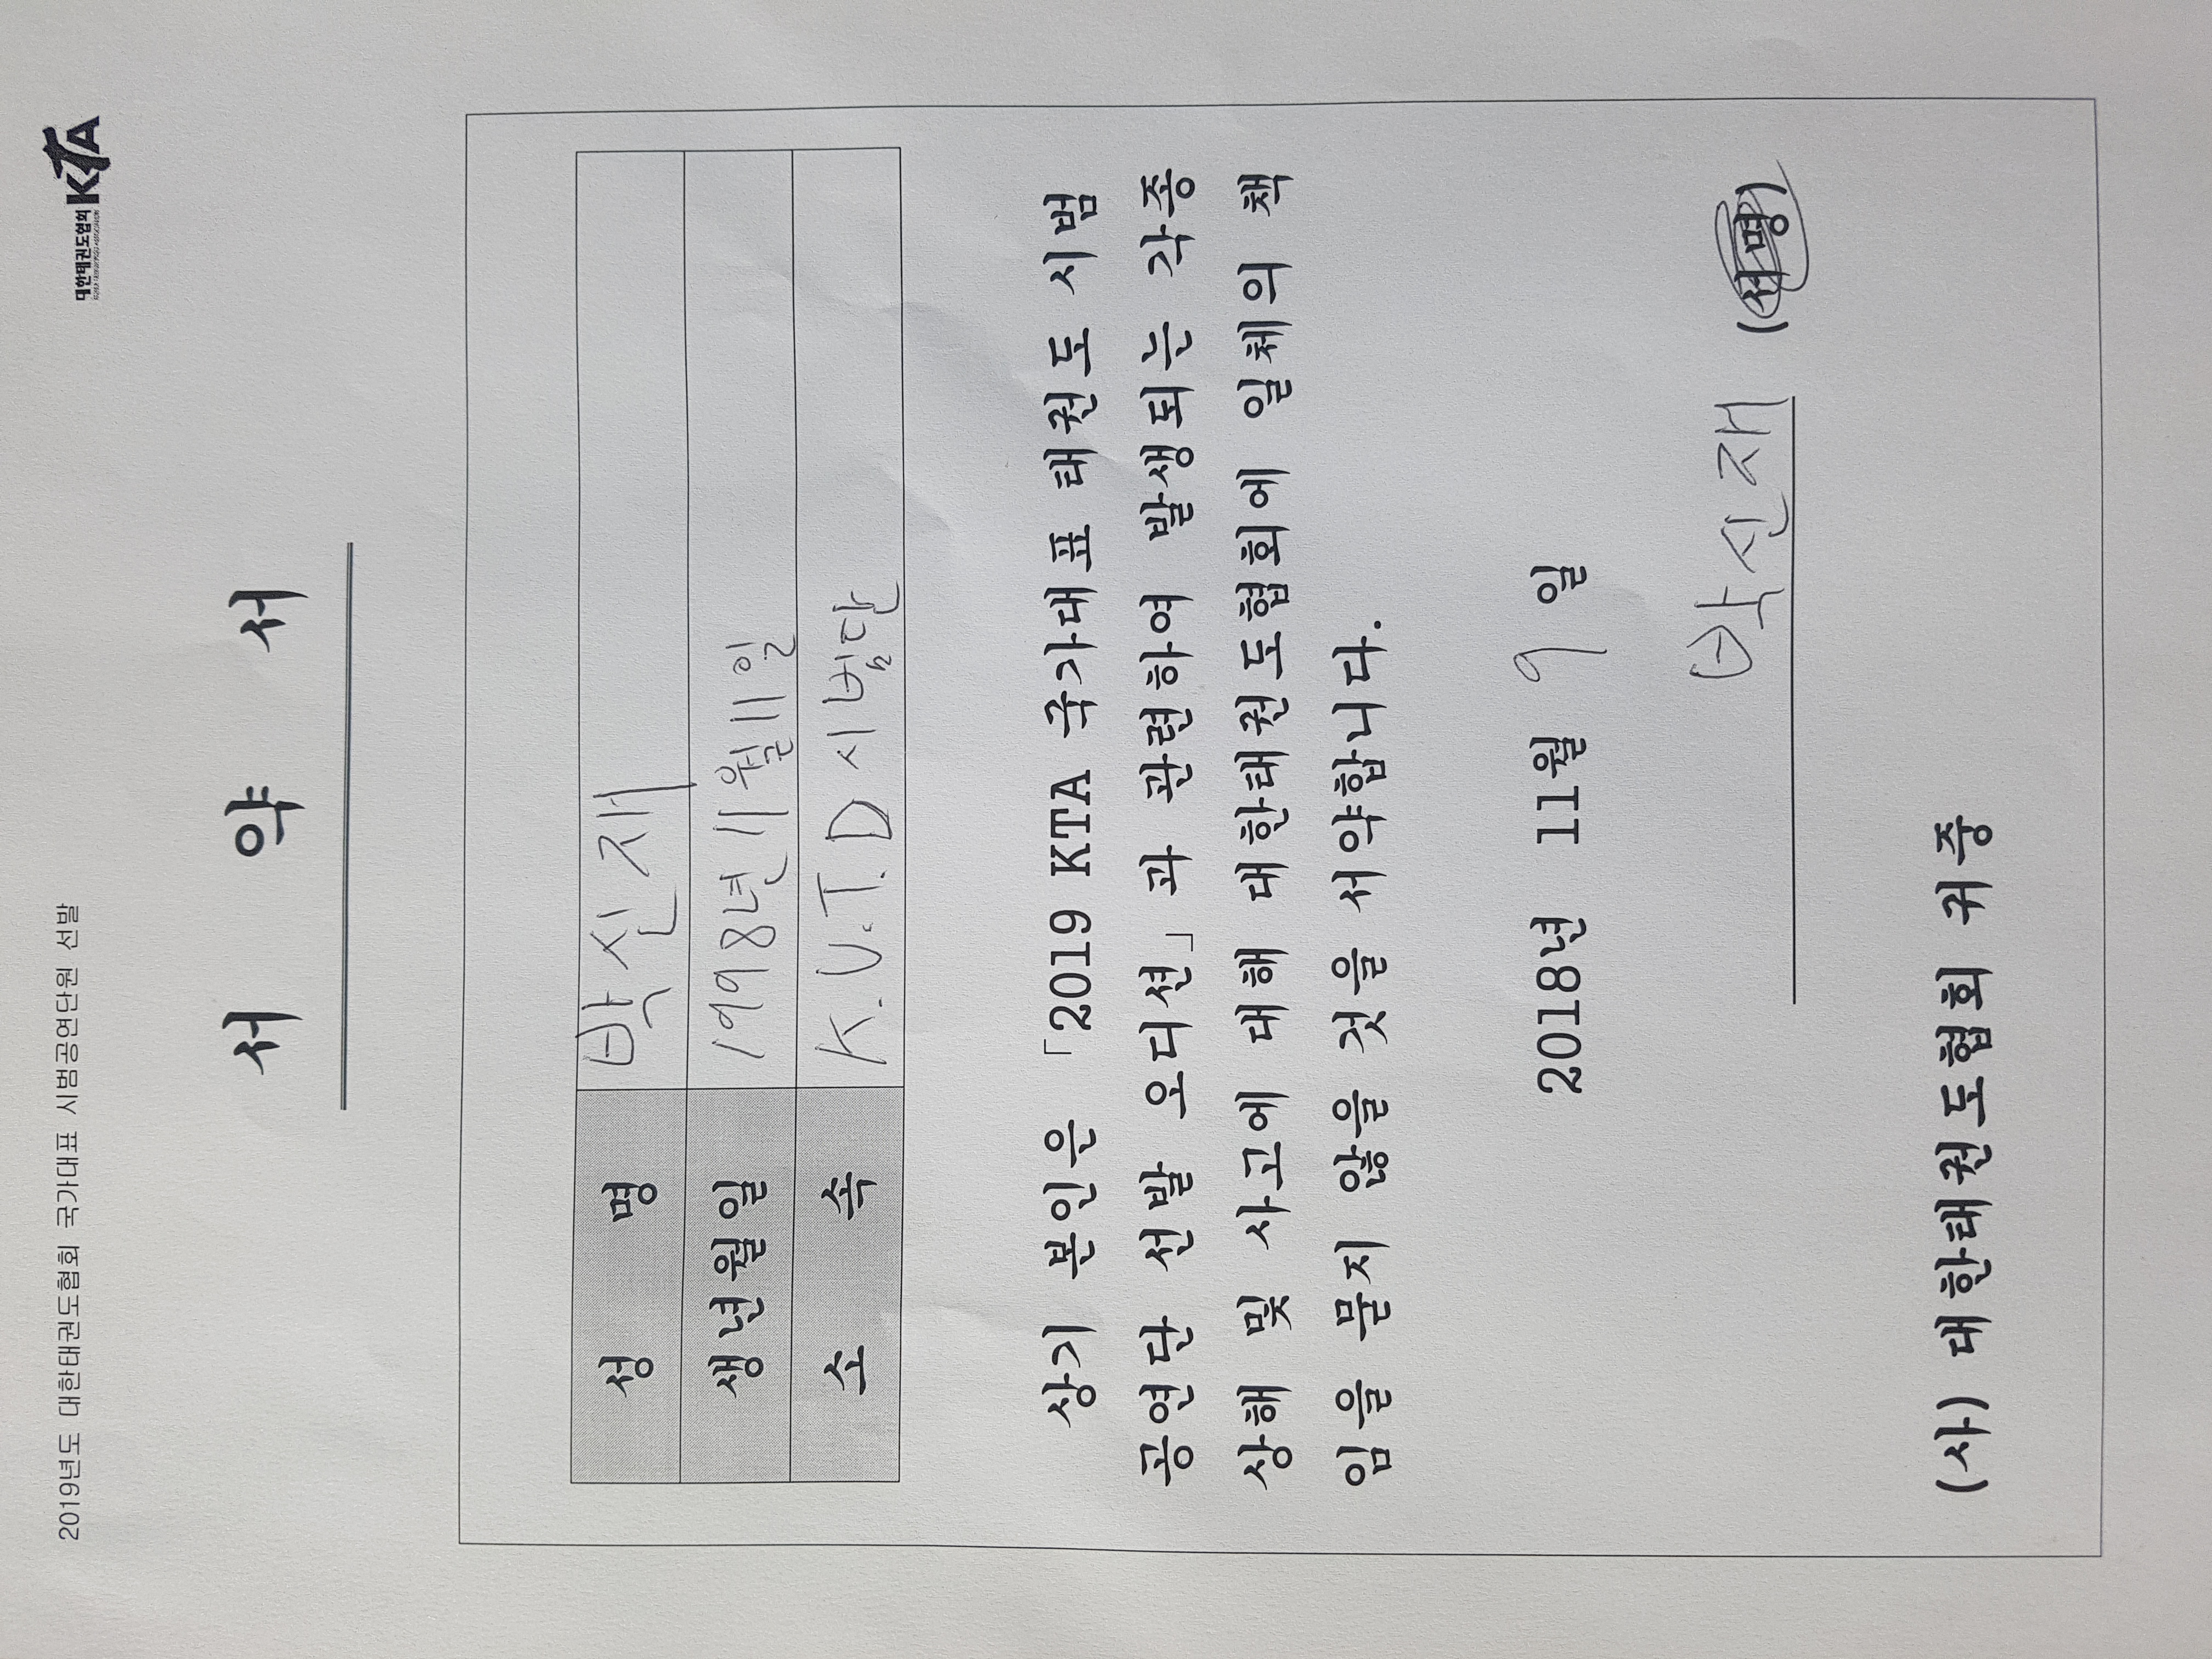 2019년도 대한태권도협회 국가대표 시범공연단원 선발
대한태권도협회 KTA
서 약 서
성 명 박신재
생년월일 1998년 11월 11일
소 속 K.U.T.D 시범단
상기 본인은 「2019 KTA 국가대표 태권도 시범
공연단 선발 오디션」과 관련하여 발생되는 각종
상해 및 사고에 대해 대한태권도협회에 일체의 책
임을 물지 않을 것을 서약합니다.
2018년 11월 9일
박신재 (서명)
(사) 대한태권도협회 귀중